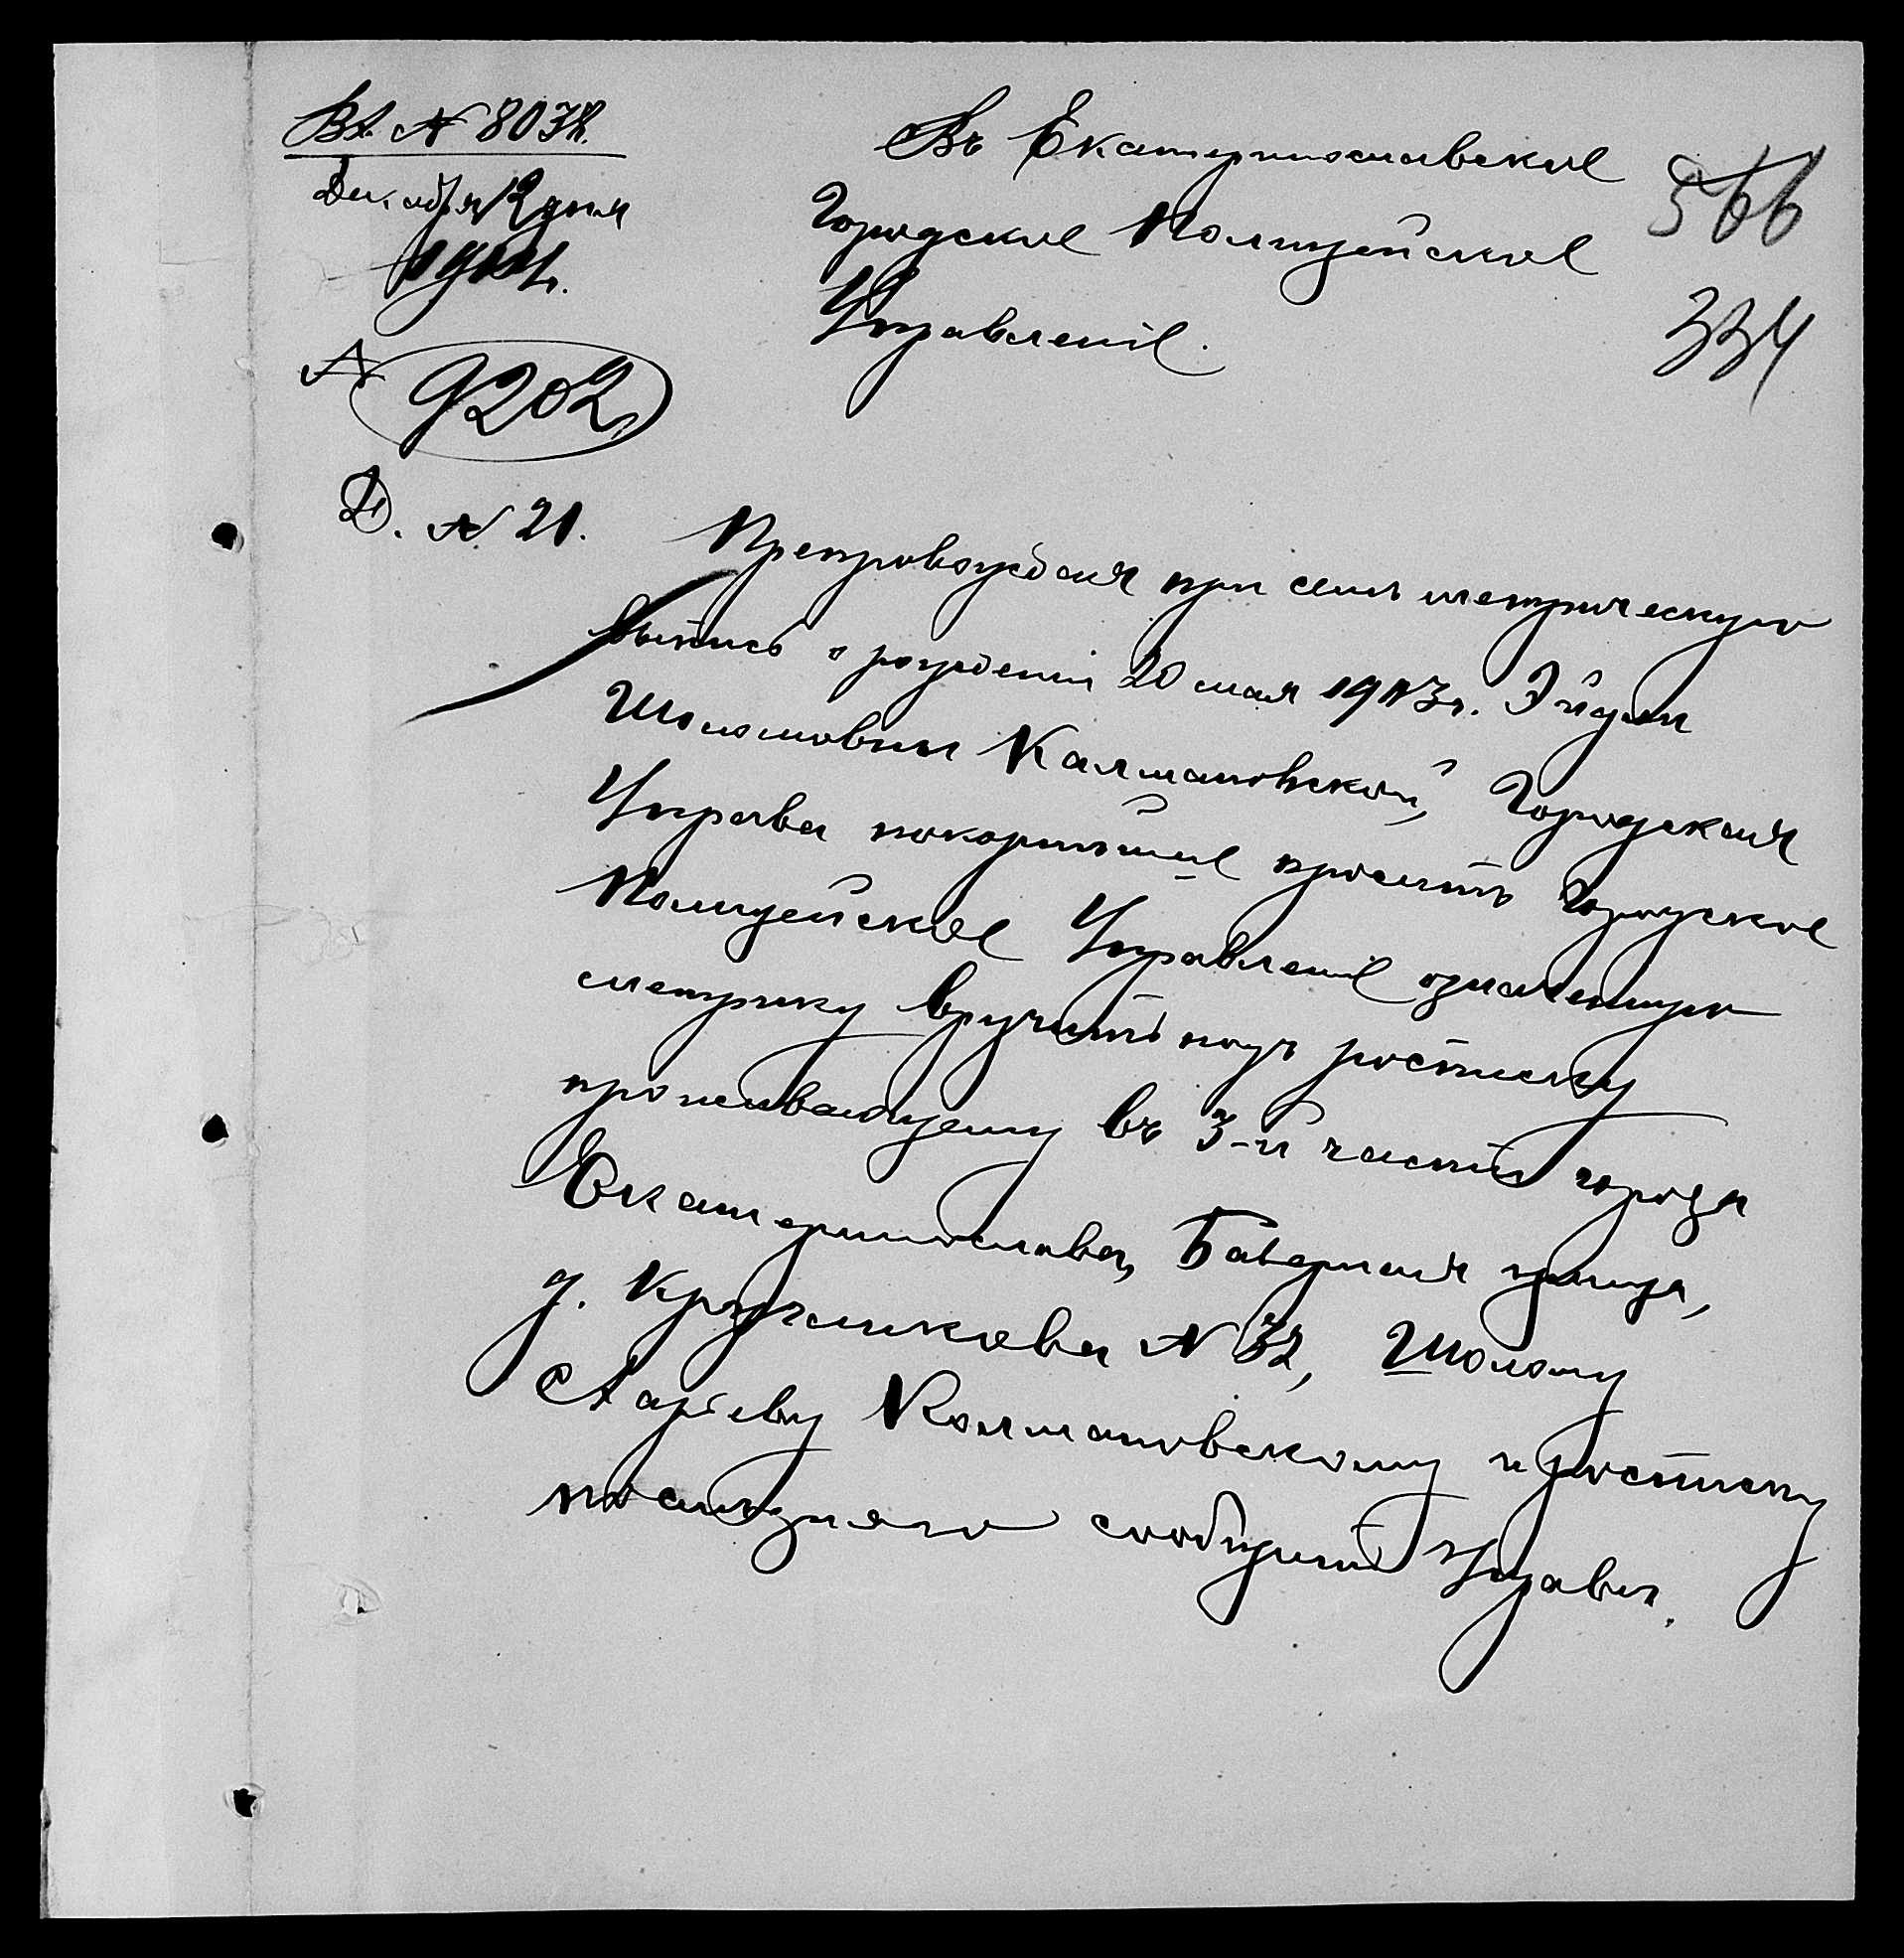 Вх. № 8038.
Декабря 12 дня
№ 9202
Д. № 21.
Въ Екатеринославское
Городское Полицейское
Управленіе.
566
334
Препровождая при семъ метрическую
выпись о рожденіи 20 мая 1913 г. Эйдли
Шоломовны Калмановской, Городская
Управа покорнѣйше проситъ Городское
Полицейское Управленіе означенную
метрику вручить подъ росписку
проживающему въ 3-й части города
Екатеринослава, Базарная улица,
д. Кружчикова № 32, Шолому
Аріеву Калмановскому и росписку
послѣдняго сообщить Управѣ.